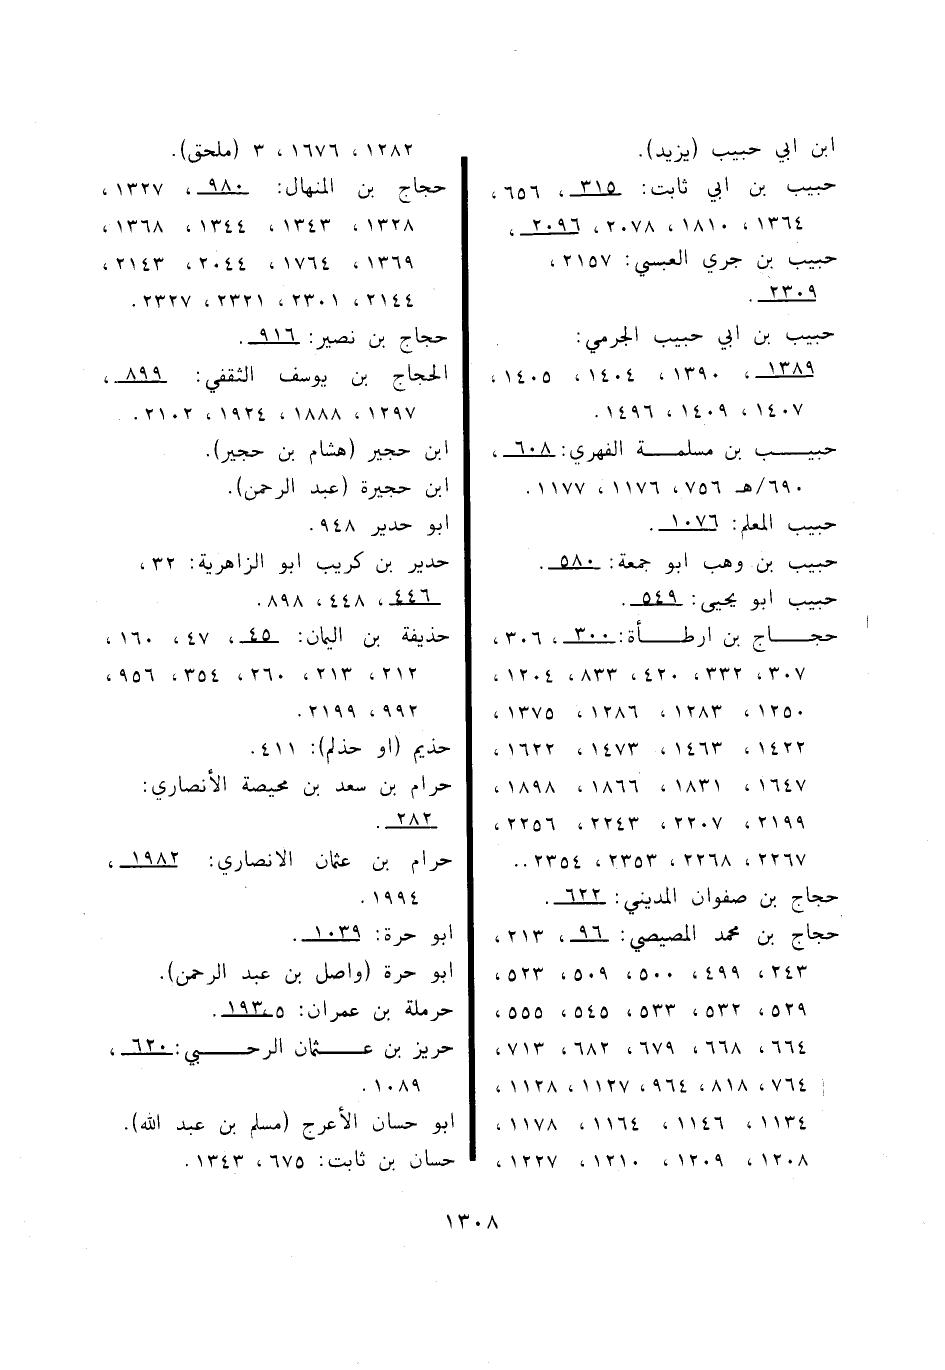 ابن ابي حبيب (يزيد).
حبيب بن ابي ثابت: ٣١٥، ٦٥٦،
١٣٦٤، ١٨١٠، ٢٠٧٨، ٢٠٩٦،
حبيب بن جري العبسي: ٢١٥٧،
٢٣٠٩.
حبيب بن ابي حبيب الجرمي:
١٣٨٩، ١٣٩٠، ١٤٠٤، ١٤٠٥،
١٤٠٧، ١٤٠٩، ١٤٩٦.
حبيب بن مسلمة الفهري: ٦٠٨،
٦٩٠/هـ ٧٥٦، ١١٧٦، ١١٧٧.
حبيب المعلم: ١٠٧٦.
حبيب بن وهب ابو جمعة: ٥٨٠.
حبيب ابو يحيى: ٥٤٩.
حجاج بن ارطأة: ٣٠٠، ٣٠٦،
٣٠٧، ٣٣٢، ٤٢٠، ٨٣٣، ١٢٠٤،
١٢٥٠، ١٢٨٣، ١٢٨٦، ١٣٧٥،
١٤٢٢، ١٤٦٣، ١٤٧٣، ١٦٢٢،
١٦٤٧، ١٨٣١، ١٨٦٦، ١٨٩٨،
٢١٩٩، ٢٢٠٧، ٢٢٤٣، ٢٢٥٦،
٢٢٦٧، ٢٢٦٨، ٢٣٥٣، ٢٣٥٤..
حجاج بن صفوان المديني: ٦٢٢.
حجاج بن محمد المصيصي: ٩٦، ٢١٣،
٢٤٣، ٤٩٩، ٥٠٠، ٥٠٩، ٥٢٣،
٥٢٩، ٥٣٢، ٥٣٣، ٥٤٥، ٥٥٥،
٦٦٤، ٦٦٨، ٦٧٩، ٦٨٢، ٧١٣،
٧٦٤، ٨١٨، ٩٦٤، ١١٢٧، ١١٢٨،
١١٣٤، ١١٤٦، ١١٦٤، ١١٧٨،
١٢٠٨، ١٢٠٩، ١٢١٠، ١٢٢٧،
١٢٨٢، ١٦٧٦، ٣ (ملحق).
حجاج بن المنهال: ٩٨٠، ١٣٢٧،
١٣٢٨، ١٣٤٣، ١٣٤٤، ١٣٦٨،
١٣٦٩، ١٧٦٤، ٢٠٤٤، ٢١٤٣،
٢١٤٤، ٢٣٠١، ٢٣٢١، ٢٣٢٧.
حجاج بن نصير: ٩١٦.
الحجاج بن يوسف الثقفي: ٨٩٩،
١٢٩٧، ١٨٨٨، ١٩٢٤، ٢١٠٢.
ابن حجير (هشام بن حجير).
ابن حجيرة (عبد الرحمن).
ابو حدير ٩٤٨.
حدير بن كريب ابو الزاهرية: ٣٢،
٤٤٦، ٤٤٨، ٨٩٨.
حذيفة بن اليمان: ٤٥، ٤٧، ١٦٠،
٢١٢، ٢١٣، ٢٦٠، ٣٥٤، ٩٥٦،
٩٩٢، ٢١٩٩.
حذيم (او حذلم): ٤١١.
حرام بن سعد بن محيصة الأنصاري:
٢٨٢.
حرام بن عثمان الانصاري: ١٩٨٢،
١٩٩٤.
ابو حرة: ١٠٣٩.
ابو حرة (واصل بن عبد الرحمن).
حرملة بن عمران: ٥، ١٩٣.
حريز بن عثمان الرحبي: ٦٢٠،
١٠٨٩.
ابو حسان الأعرج (مسلم بن عبد الله).
حسان بن ثابت: ٦٧٥، ١٣٤٣.
١٣٠٨